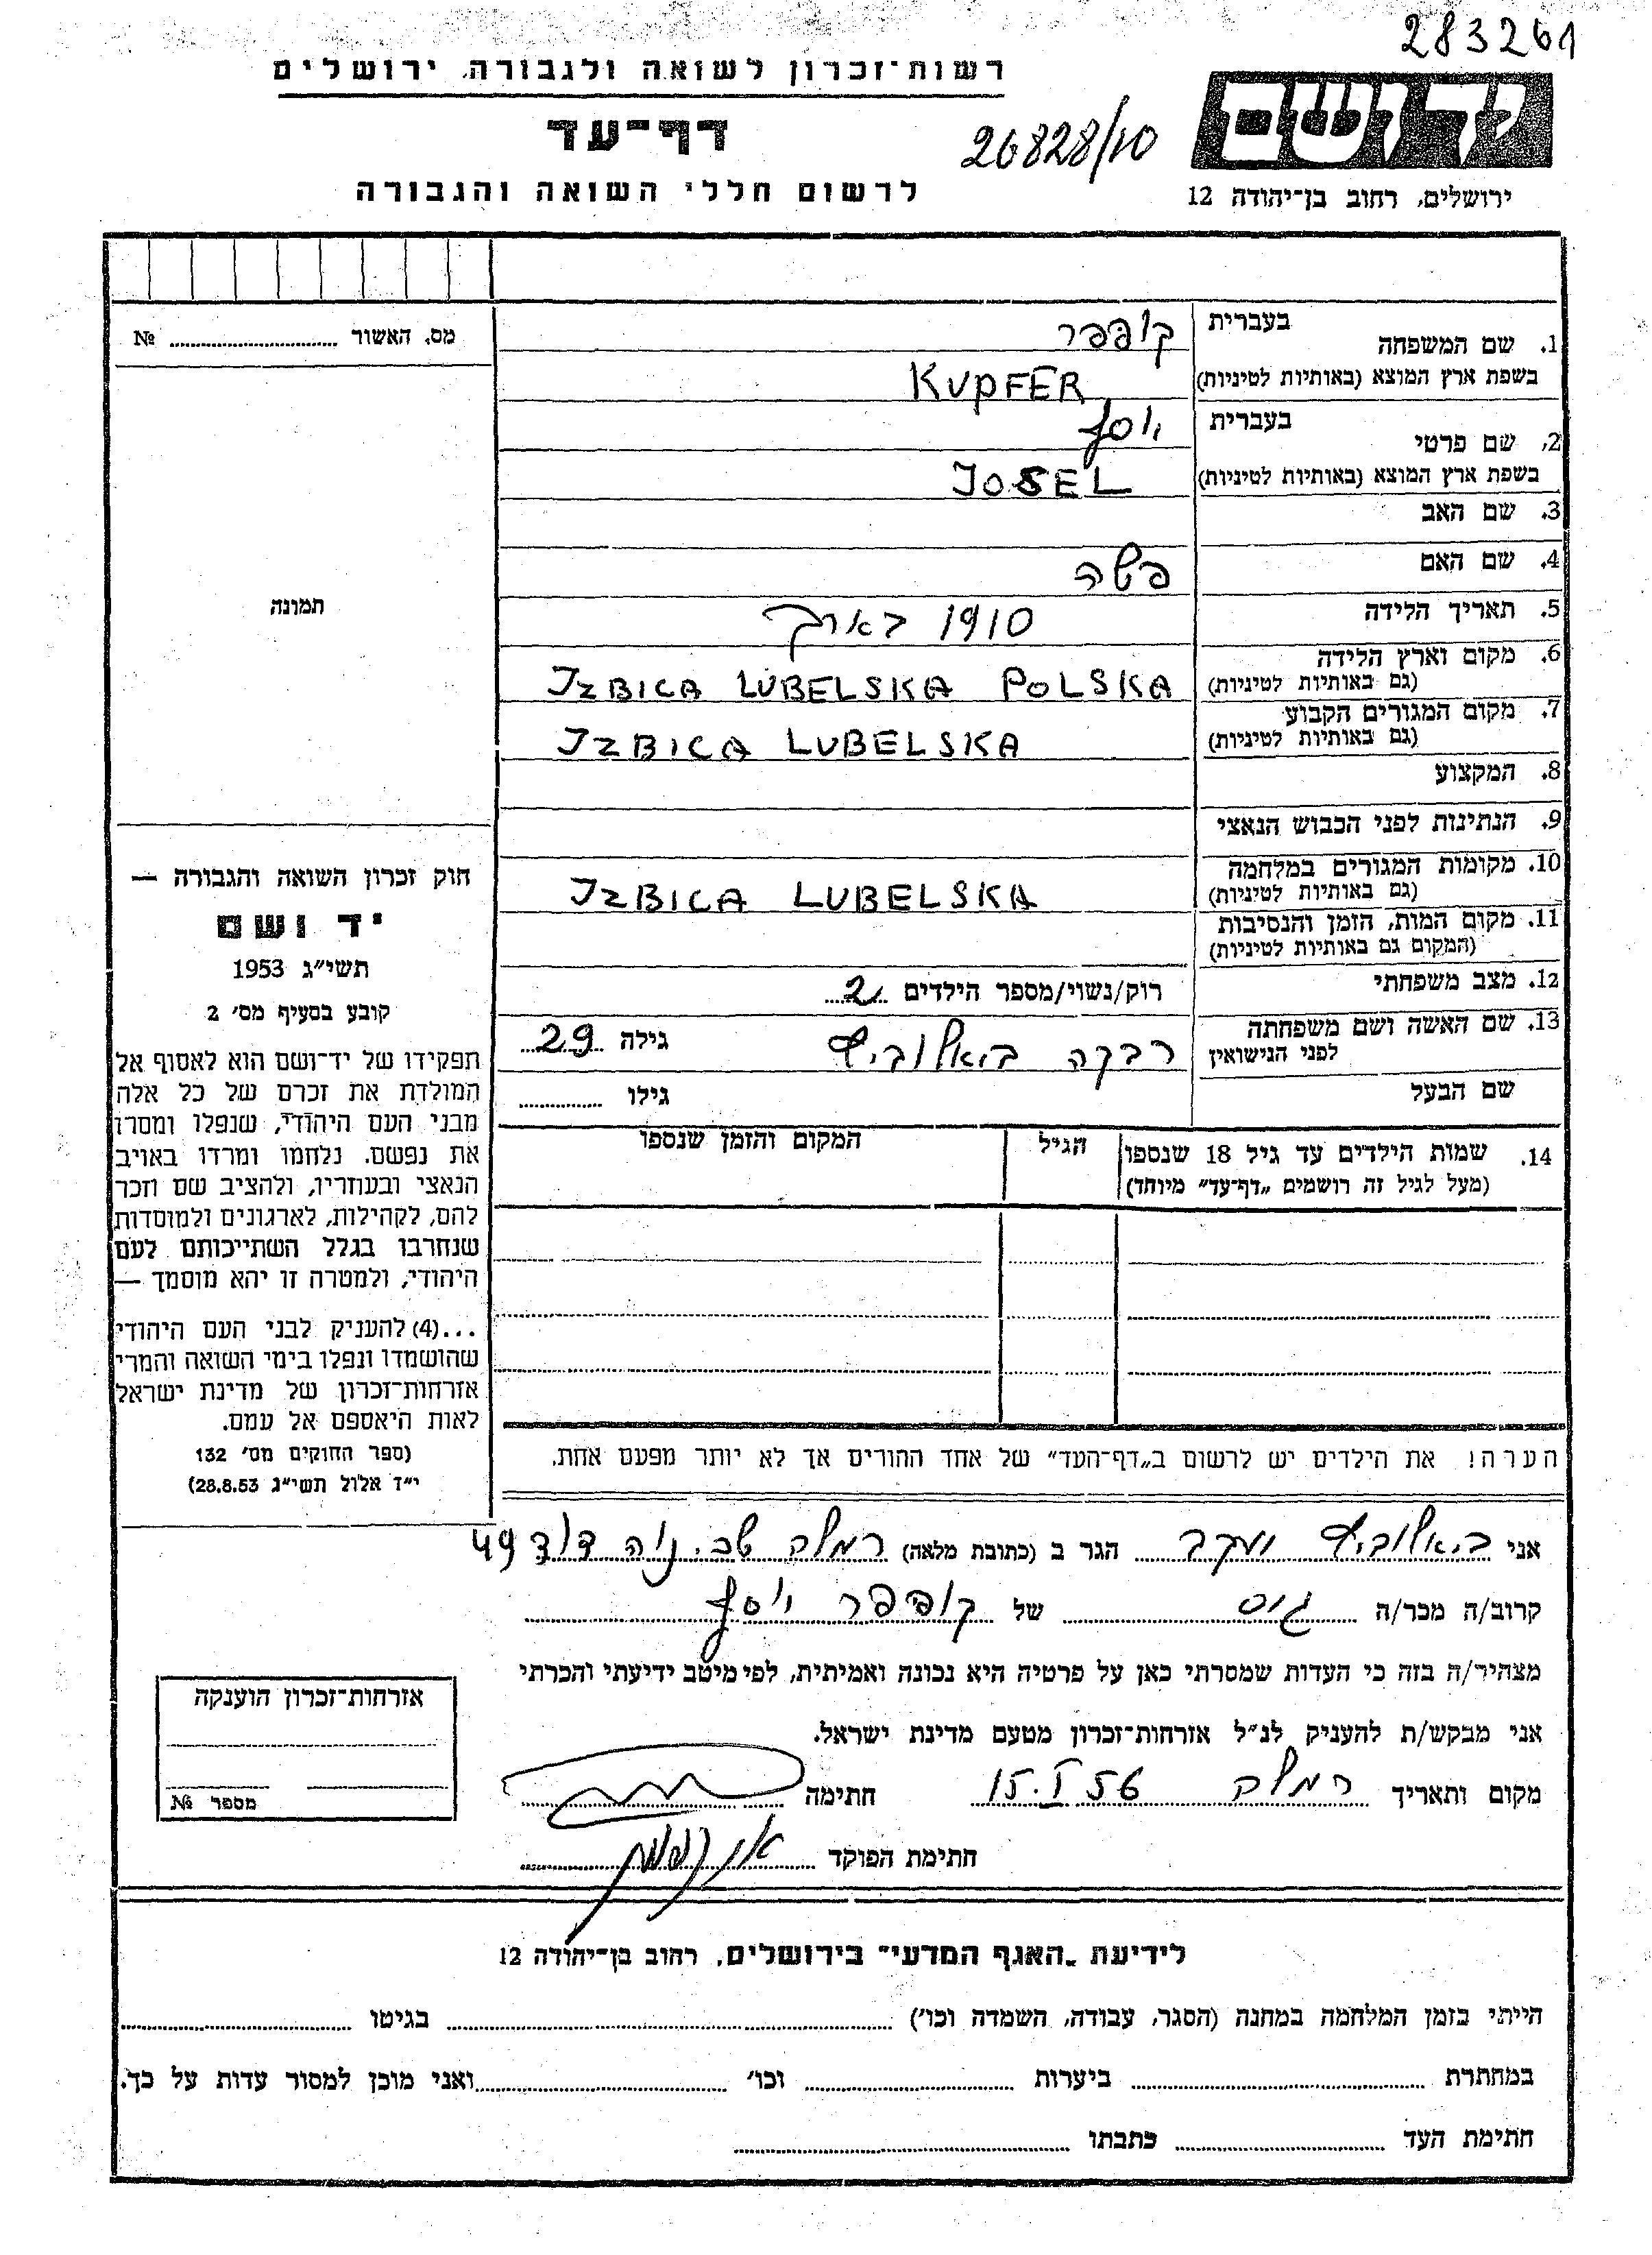 283261
רשות־זכרון לשואה ולגבורה, ירושלים
יד ושם
דף־עד
26828/10
לרשום חללי השואה והגבורה
ירושלים, רחוב בן־יהודה 12
מס. האשור № 
1. שם המשפחה בעברית קופפר
בשפת ארץ המוצא (באותיות לטיניות) KUPFER
2. שם פרטי בעברית יוסף
בשפת ארץ המוצא (באותיות לטיניות) JOSEL
3. שם האב
4. שם האם פשה
5. תאריך הלידה 1910 בארך
6. מקום וארץ הלידה
(גם באותיות לטיניות) IZBICA LUBELSKA POLSKA
7. מקום המגורים הקבוע
(גם באותיות לטיניות) IZBICA LUBELSKA
8. המקצוע
9. הנתינות לפני הכבוש הנאצי
10. מקומות המגורים במלחמה
(גם באותיות לטיניות) IZBICA LUBELSKA
11. מקום המות, הזמן והנסיבות
(המקום גם באותיות לטיניות)
12. מצב משפחתי רוק/נשוי/מספר הילדים 2
13. שם האשה ושם משפחתה
לפני הנישואין רבקה ביאלוביץ גילה 29
שם הבעל גילו
14. שמות הילדים עד גיל 18 שנספו הגיל המקום והזמן שנספו
(מעל לגיל זה רושמים „דף־עד” מיוחד)
הערה! את הילדים יש לרשום ב„דף־העד” של אחד ההורים אך לא יותר מפעם אחת.
תמונה
חוק זכרון השואה והגבורה —
יד ושם
תשי״ג 1953
קובע בסעיף מס׳ 2
תפקידו של יד־ושם הוא לאסוף אל
המולדת את זכרם של כל אלה
מבני העם היהודי, שנפלו ומסרו
את נפשם. נלחמו ומרדו באויב
הנאצי ובעוזריו, ולהציב שם וזכר
להם, לקהילות, לארגונים ולמוסדות
שנחרבו בגלל השתייכותם לעם
היהודי, ולמטרה זו יהא מוסמך —
...(4) להעניק לבני העם היהודי
שהושמדו ונפלו בימי השואה והמרי
אזרחות־זכרון של מדינת ישראל
לאות היאספם אל עמם.
(ספר החוקים מס׳ 132
י״ז אלול תשי״ג 28.8.53)
אני ביאלוביץ יעקב הגר ב (כתובת מלאה) רמלה שכ. נוה דוד 49
קרוב/ה מכר/ה גיס של קופפר יוסף
מצהיר/ה בזה כי העדות שמסרתי כאן על פרטיה היא נכונה ואמיתית, לפי מיטב ידיעתי והכרתי
אני מבקש/ת להעניק לנ״ל אזרחות־זכרון מטעם מדינת ישראל.
מקום ותאריך רמלה 15.I.56 חתימה
חתימת הפוקד
אזרחות־זכרון הוענקה
מספר №
לידיעת „האגף המדעי” בירושלים, רחוב בן־יהודה 12
הייתי בזמן המלחמה במחנה (הסגר, עבודה, השמדה וכו׳) בגיטו
במחתרת ביערות וכו׳ ואני מוכן למסור עדות על כך.
חתימת העד כתבתו